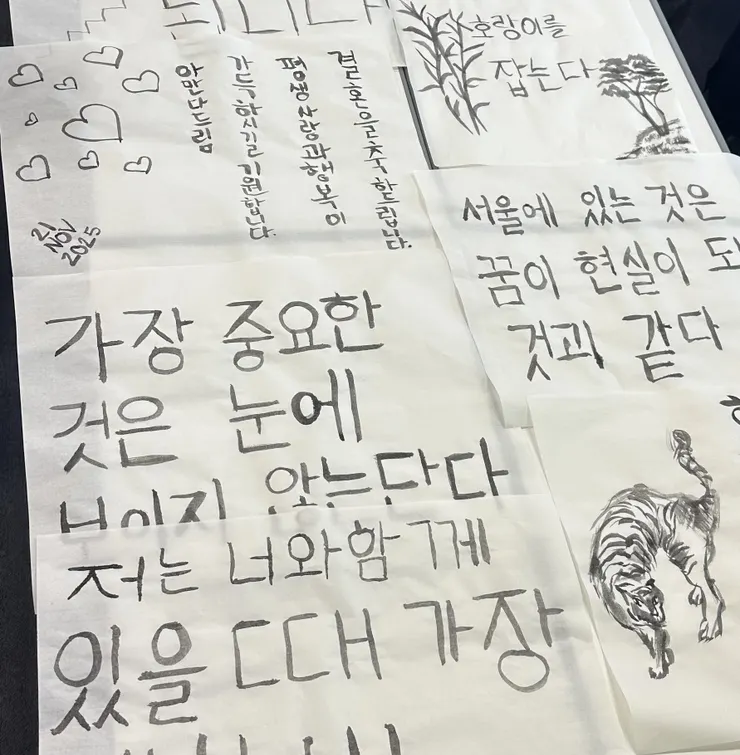 호랑이를
잡는다
결혼을 축하드립니다.
평생 사랑과 행복이
가득하시길 기원합니다.
아만다드림
21
NOV
2025
서울에 있는 것은
꿈이 현실이 되
것과 같다
가장 중요한
것은 눈에
보이지 않는단다
저는 너와 함께
있을 때 가장